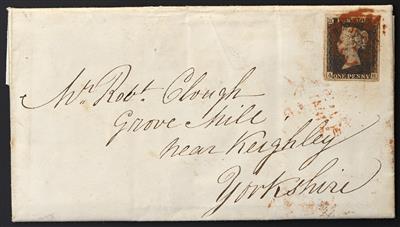 Mr. Robt. Clough
Grove Mill
near Keighley
Yorkshire
POSTAGE
ONE PENNY